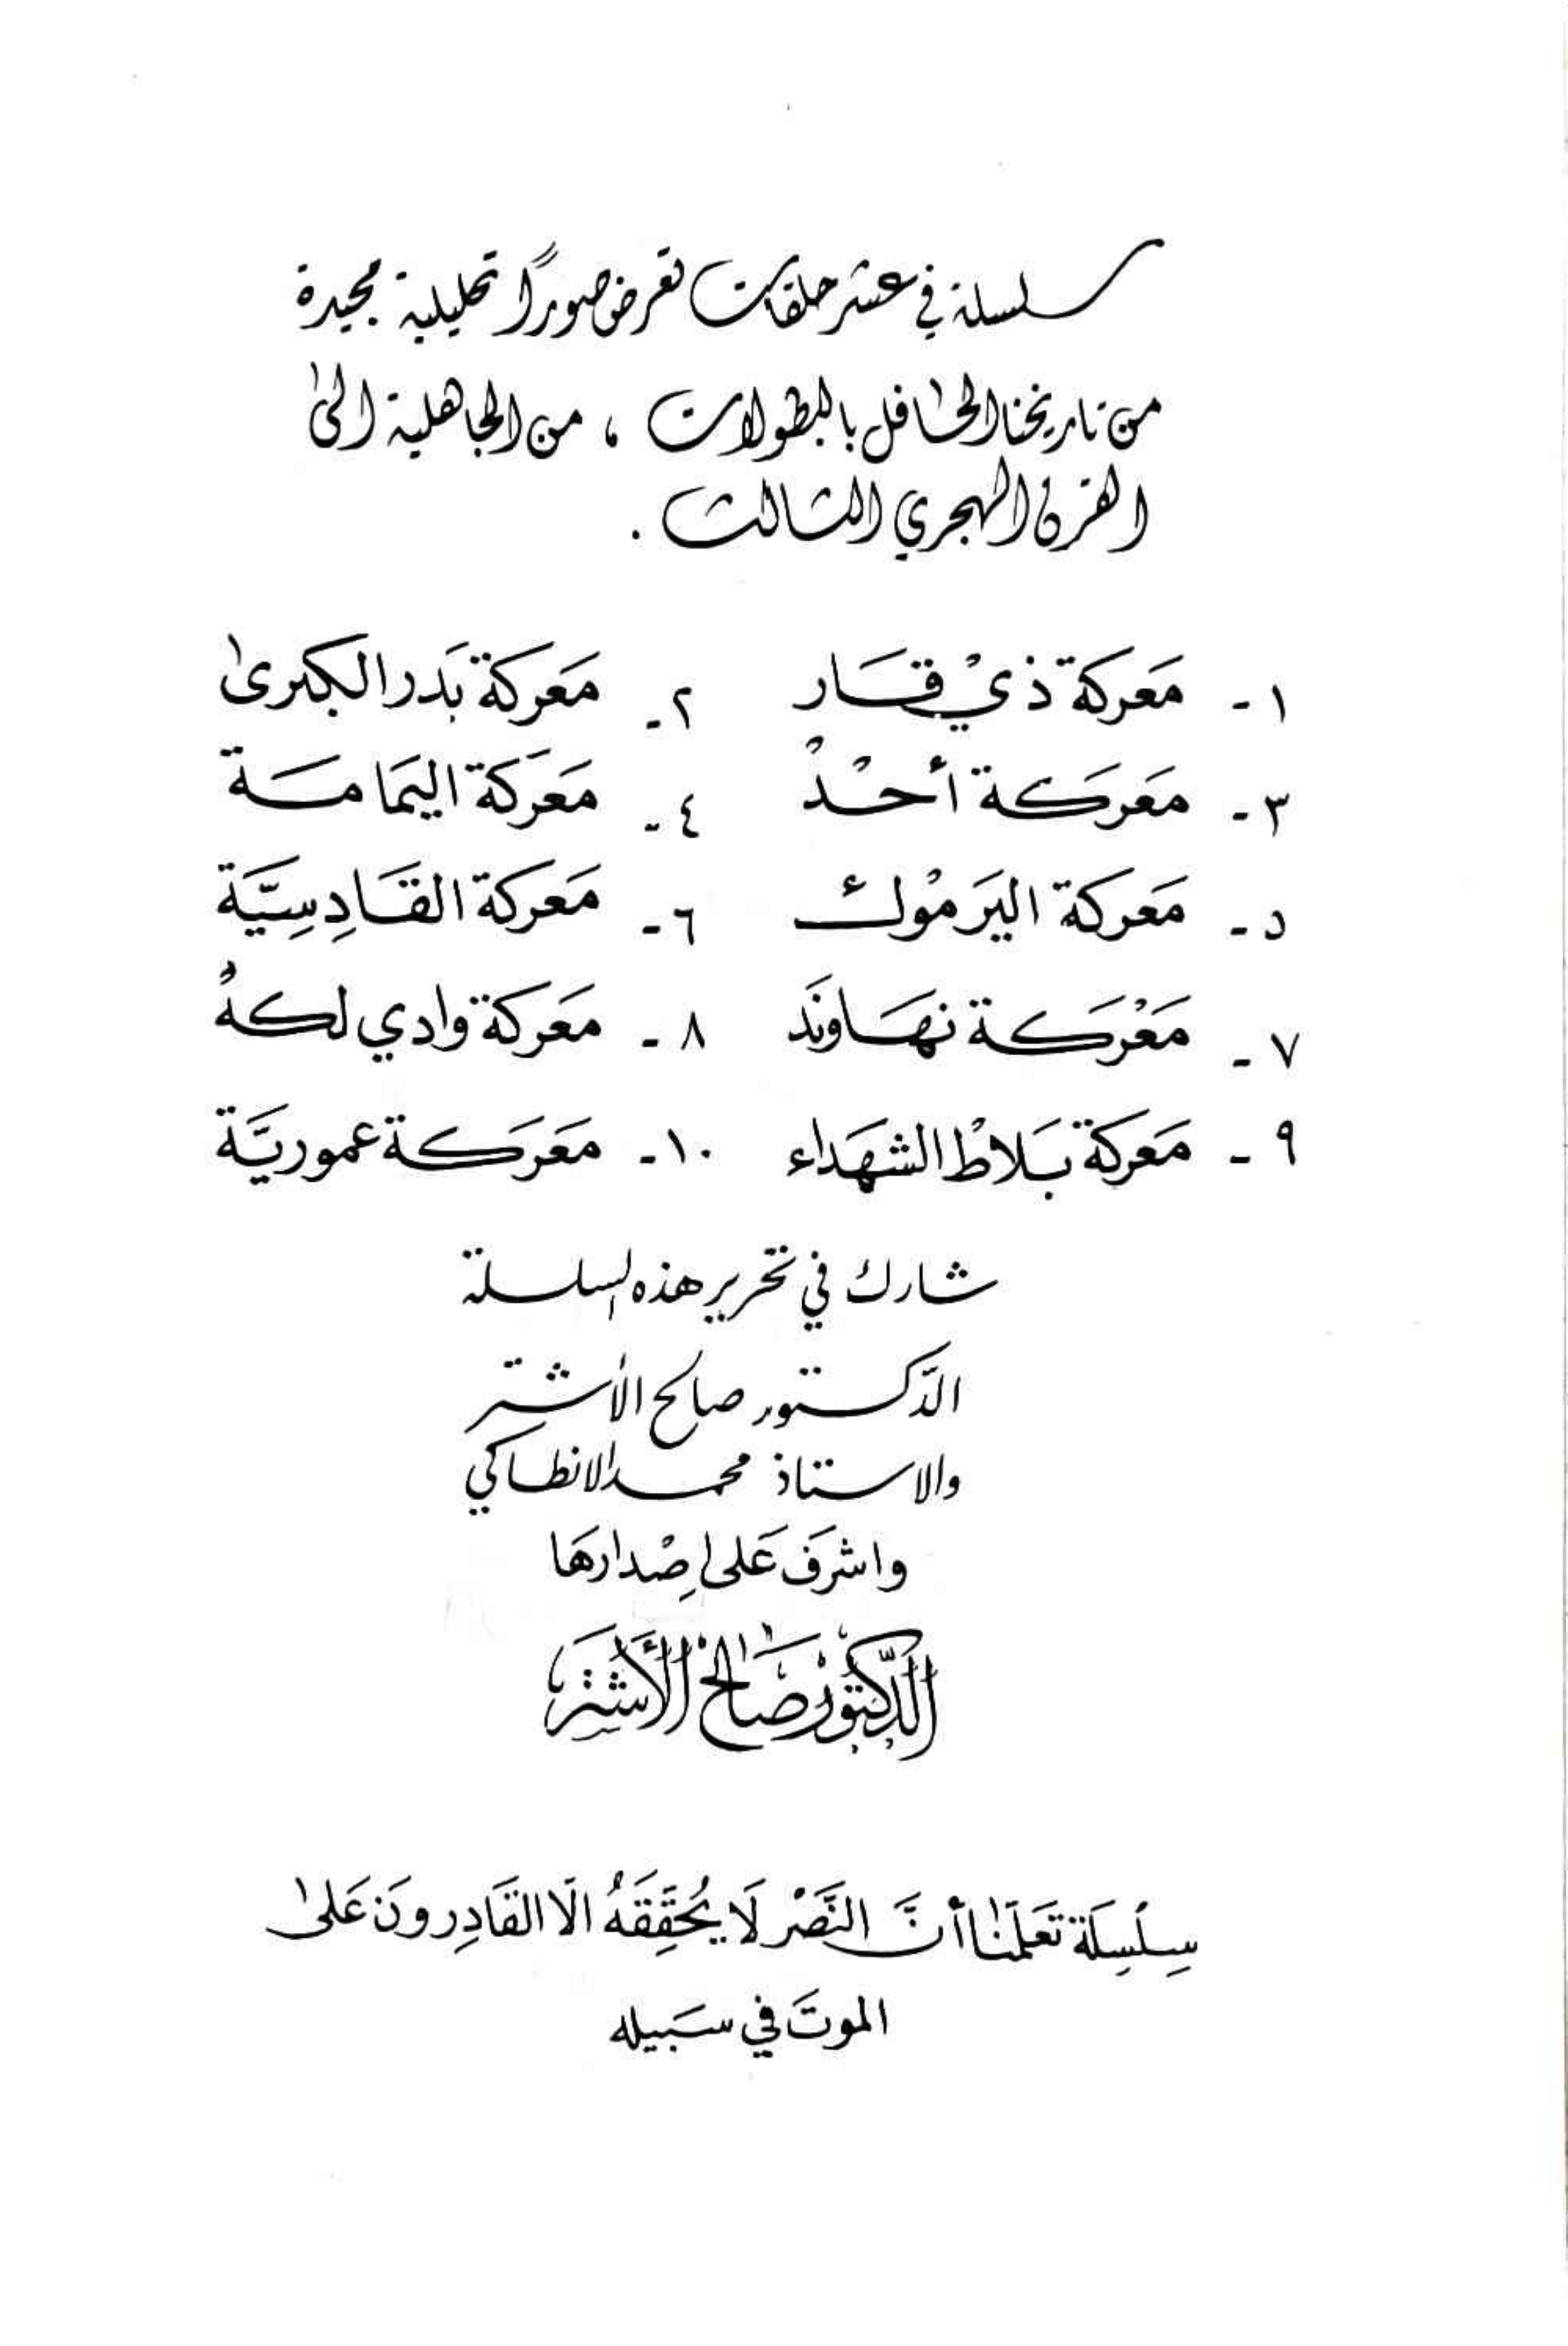 سلسلة في عشر حلقات تعرض صوراً تحليلية مجيدة
من تاريخنا الحافل بالبطولات ، من الجاهلية الى
القرن الهجري الثالث .
١ - مَعركة ذيْ قَار ٢ - مَعَركة بَدر الكبرىٰ
٣ - مَعَركة أُحُدْ ٤ - مَعَركَة اليَمَامَة
٥ - مَعَركة اليَرمُوك ٦ - مَعَركة القَادِسِيَّة
٧ - مَعْرَكة نهَاوند ٨ - مَعَركة وادي لكهُ
٩ - مَعَركة بَلاطْ الشهَداء ١٠ - مَعَرَكة عموريَّة
شارك في تحرير هذه السلسلة
الدّكتور صالح الأشتر
والاستاذ محمد الانطاكي
واشرَف عَلى اِصْدارهَا
الدّكتُورْ صَالح الأَشتَر
سِلسِلَة تَعَلّمنَا أنَّ النَّصْر لَا يُحَقِّقَهُ الّا القَادِرونَ عَلىٰ
الموتَ في سَبيله